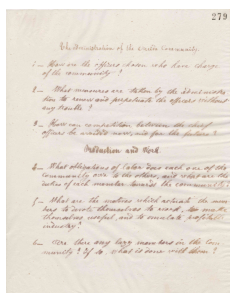 279
The Administration of the entire Community.
1 — How are the officers chosen who have charge
of the community?
2 — What measures are taken by the
to renew and perpetuate the officers without
any trouble?
3 — How can competition between the chief
officers be avoided now, and for the future?
Production and Work
4 — What obligations of labor does each one of the
community owe to the others, and what are the
duties of each member towards the community?
5 — What are the motives which actuate the mem
bers to devote themselves to work, to make
themselves useful, and to emulate profitable
industry?
6 — Are there any lazy members in the Com
munity? If so what is done with them?